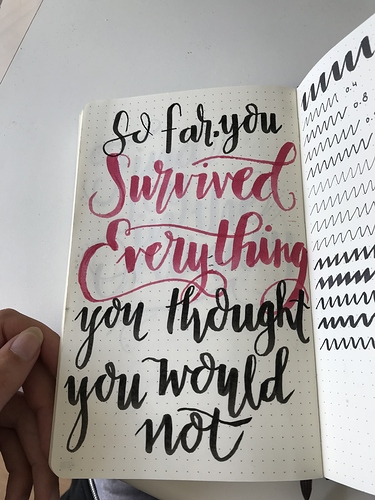 So far, you
Survived
Everything
you thought
you would
not
0.4
0.8